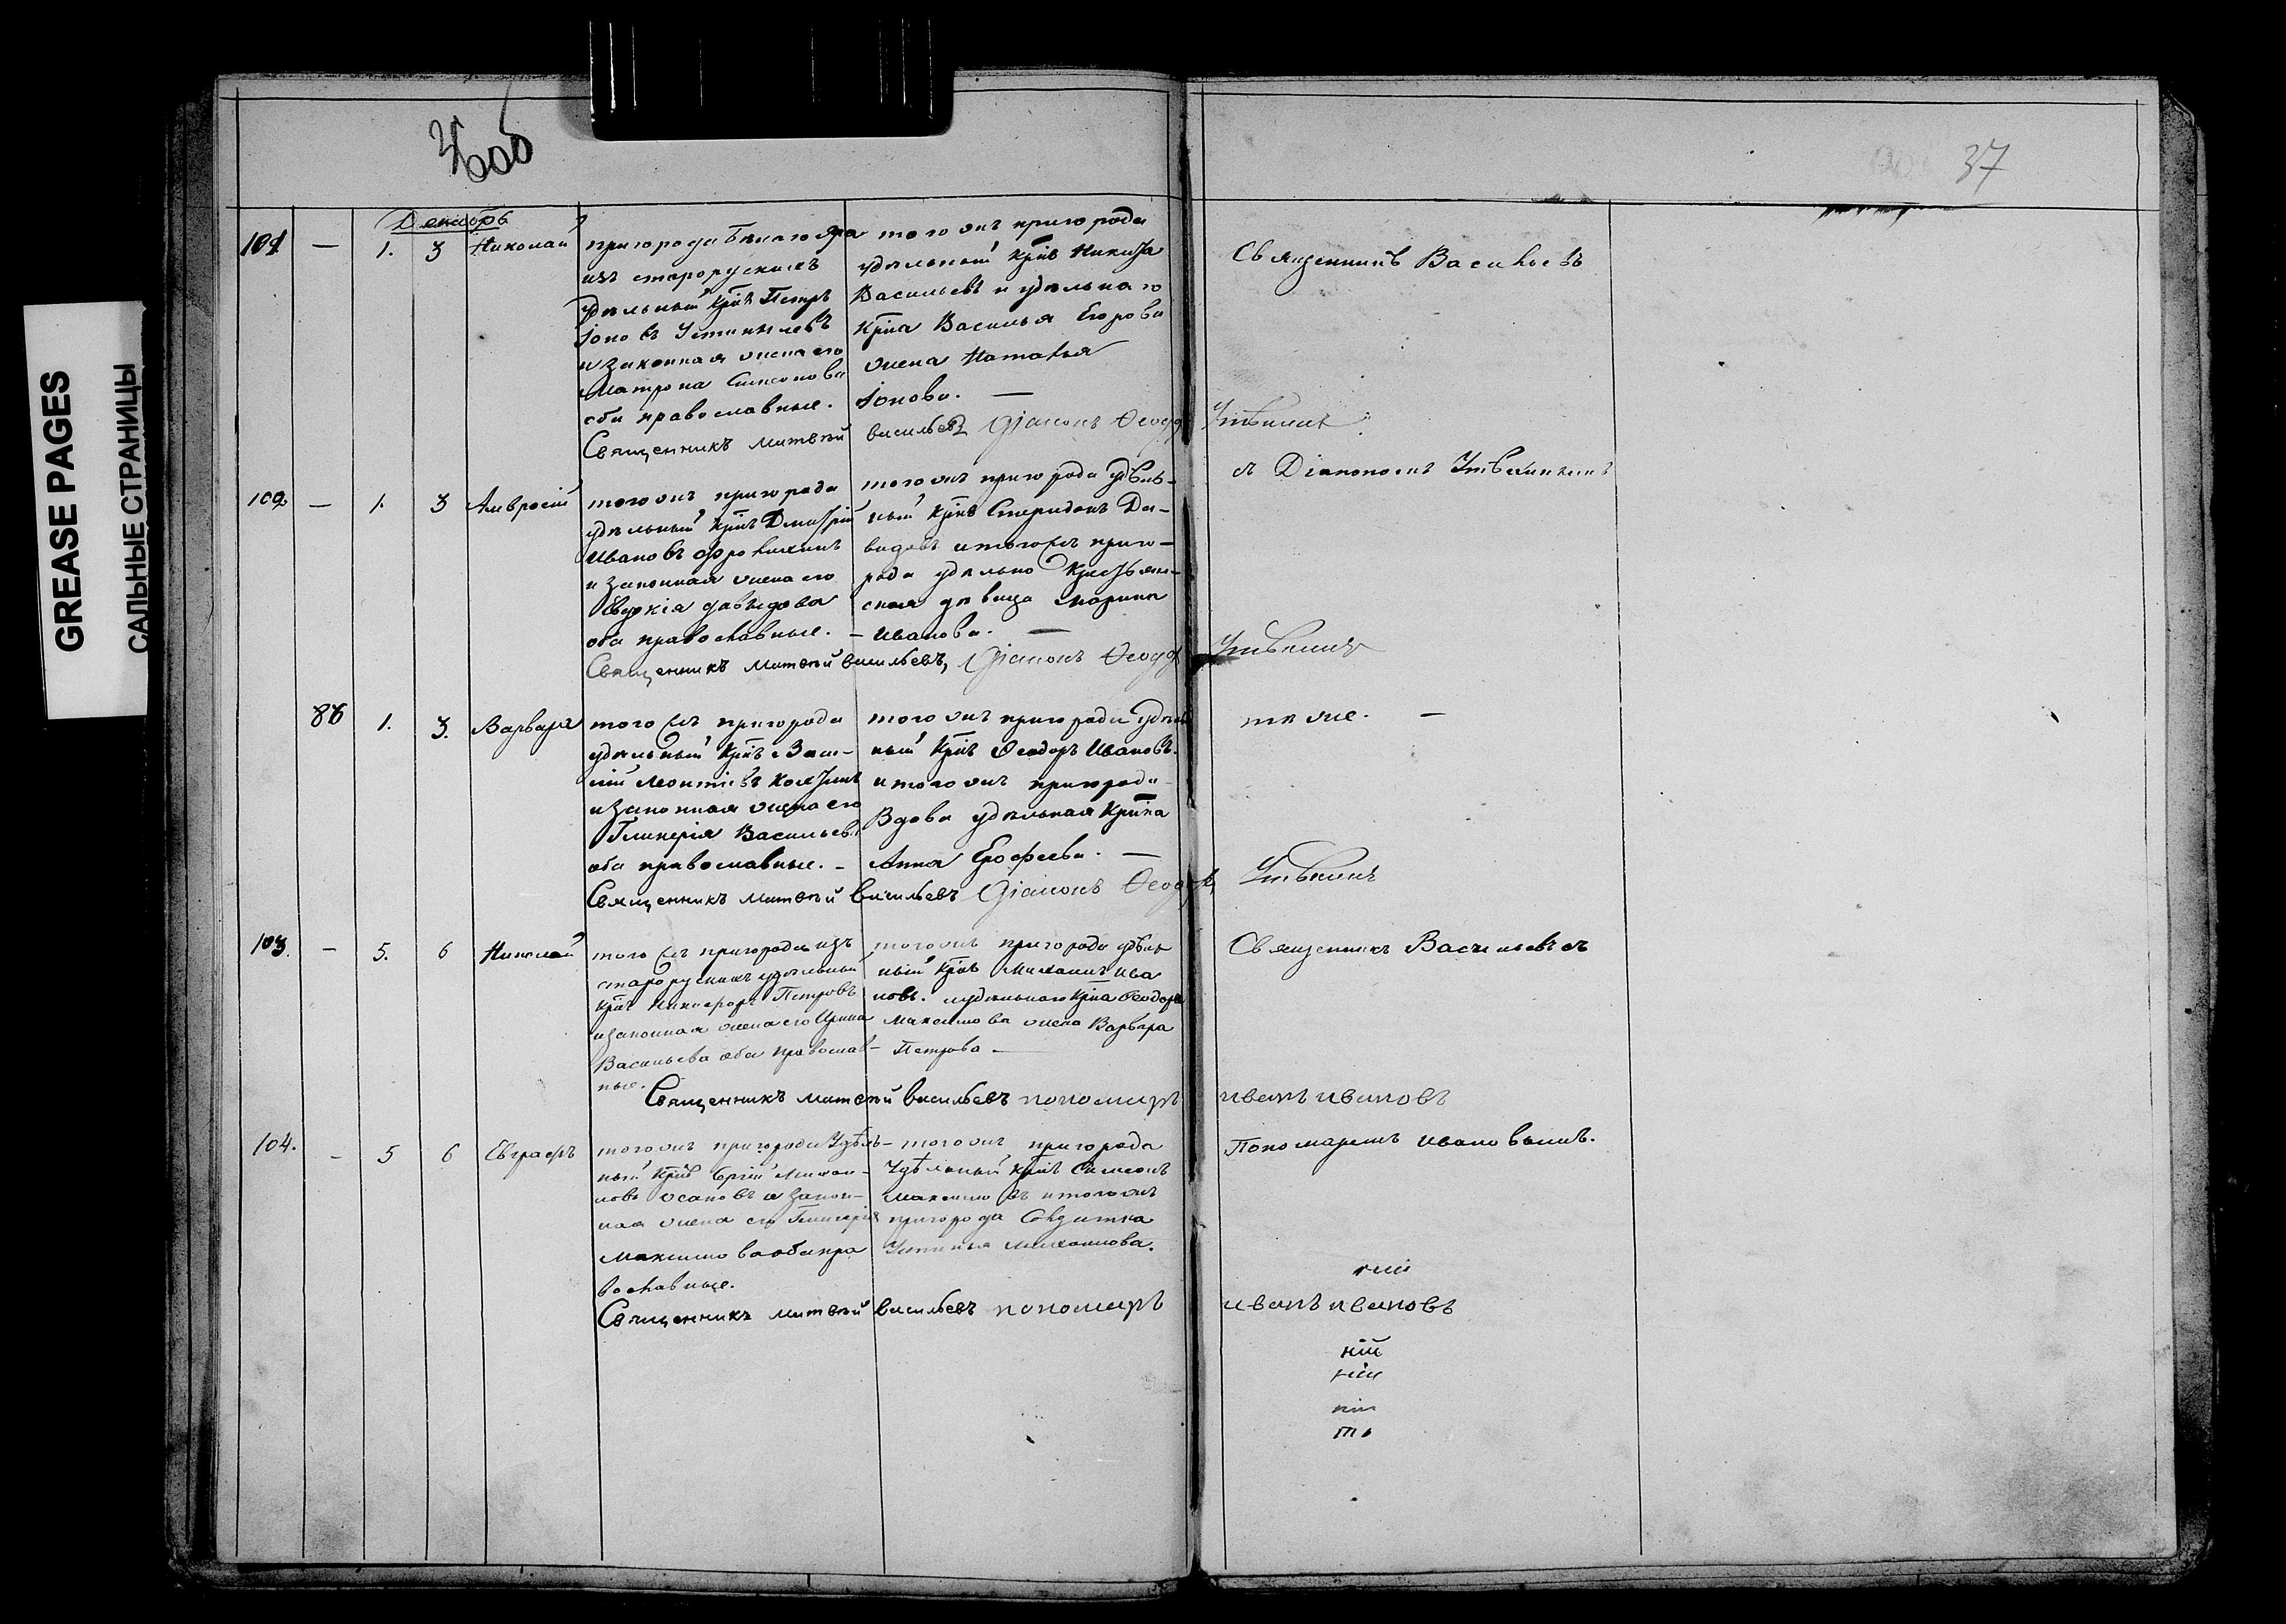 GREASE PAGES
САЛЬНЫЕ СТРАНИЦЫ
37
Декабрь
101 — 1. 3 Николай
пригорода Благо Яра
изъ старорусскихъ
удѣльный Крнъ Петръ
и законная жена его
Матрона Симеонова
оба православные.
того жъ пригорода
удѣльный Крнъ Никита
Васильевъ и удѣльнаго
Крна Василья Егорова
жена Наталья
Іонова. —
Священникъ Васильевъ
Священникъ Матвѣй Васильевъ Діаконъ Ѳеодоръ
102 — 1. 3 Амвросій
того жъ пригорода
удѣльный Крнъ Дмитрій
Ивановъ
и законная жена его
Евдокія Давыдова
оба православные. —
того жъ пригорода удѣль-
ный Крнъ Спиридонъ Да-
видовъ и того жъ приго-
рода удѣльно Крестьян-
ская дѣвица Марина
Иванова. —
съ Діакономъ
Священникъ Матвѣй Васильевъ, Діаконъ Ѳеодоръ
86 1. 3. Варвара
того жъ пригорода
удѣльный Крнъ Васи-
лій Леонтьевъ
и законная жена его
Гликерія Васильева
оба православные. —
того жъ пригорода удѣль
ный Крнъ Ѳеодоръ Ивановъ.
и того жъ пригорода
Вдова удѣльная Крнка
Анна Ерофеева. —
тѣ же. —
Священникъ Матвѣй Васильевъ Діаконъ Ѳеодоръ
103. — 5. 6 Николай
того жъ пригорода изъ
старорусскихъ удѣльный
Крнъ Никифоръ Петровъ
и законная жена его Ирина
Васильева оба православ-
ные.
того жъ пригорода удѣль
ный Крнъ Михаилъ Ива
новъ. и удѣльнаго Крна Ѳеодора
Максимова жена Варвара
Петрова —
Священникъ Васильевъ съ
Священникъ Матвѣй Васильевъ пономарь Иванъ Ивановъ
104. — 5 6 Евграфъ
того жъ пригорода Удѣль-
ный Крнъ Сергій Михаи-
ловъ и закон-
ная жена его Гликерія
Максимова оба пра
вославные.
того жъ пригорода
Удѣльный Крнъ Симеонъ
Максимовъ и того жъ
пригорода Солдатка
Устинья Михаилова.
Пономаремъ Ивановымъ.
Священникъ Матвѣй Васильевъ пономарь Иванъ Ивановъ